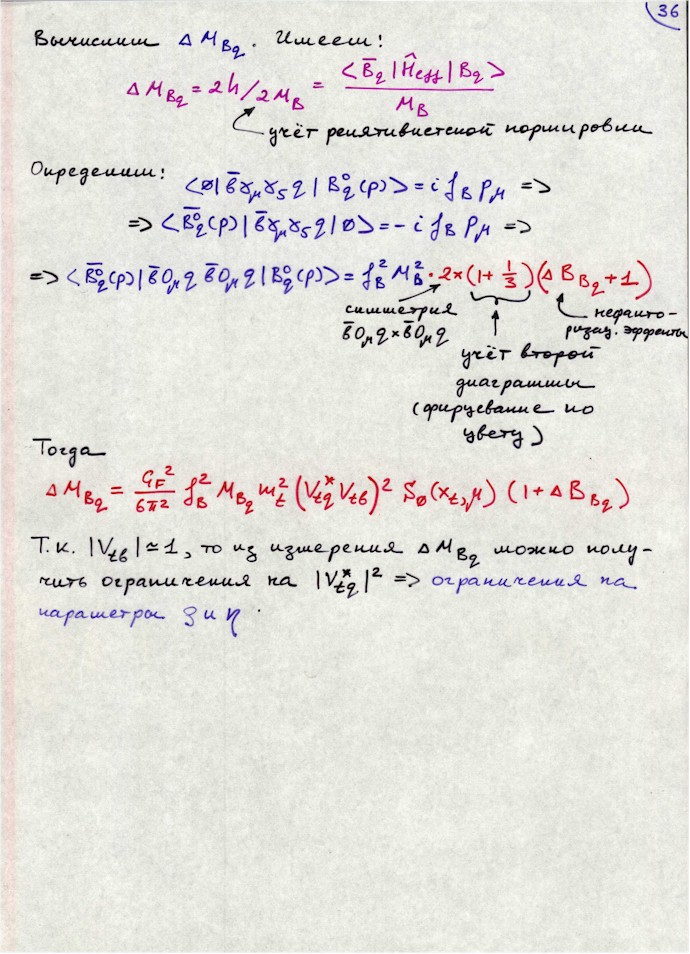 36
Вычислим Δ M_{Bq}. Имеем:
Δ M_{Bq} = 2h/2M_B = <B̄_q|Ĥ_{eff}|B_q> / M_B
учёт релятивистской нормировки
Определим:
<0|b̄γ_μγ_5 q|B_q^0(p)> = i f_B p_μ =>
=> <B̄_q^0(p)|b̄γ_μγ_5 q|0> = -i f_B p_μ =>
=> <B̄_q^0(p)|b̄O_μ q b̄O_μ q|B_q^0(p)> = f_B^2 M_B^2 · 2×(1+1/3)(Δ B_{Bq}+1)
симметрия
b̄O_μ q × b̄O_μ q
нефакто-
ризац. эффекты
учёт второй
диаграммы
(фирцевание по
цвету)
Тогда
Δ M_{Bq} = G_F^2/6π^2 f_B^2 M_{Bq} m_t^2 (V_{tq}^* V_{tb})^2 S_0(x_t, μ) (1+Δ B_{Bq})
Т.к. |V_{tb}| ≃ 1, то из измерения Δ M_{Bq} можно полу-
чить ограничения на |V_{tq}^*|^2 => ограничения на
параметры ρ и η.